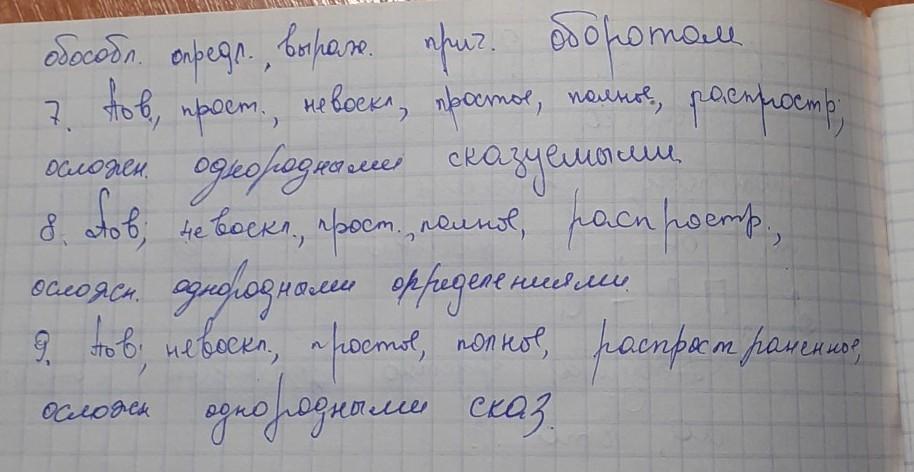 обособл. опредл., выраж. прич. оборотом
7. Пов, прост., невоскл, простое, полное, распростр,
осложн. однородными сказуемыми.
8. Пов, невоскл., прост., полное, распростр.,
осложн. однородными определениями.
9. Пов, невоскл., простое, полное, распространенное,
осложн однородными сказ.